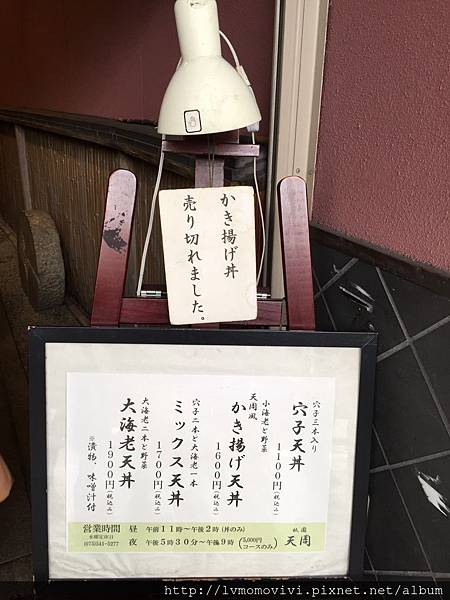 かき揚げ丼
売り切れました。
穴子三本入り
穴子天丼
1100円(税込み)
小海老と野菜
天周風
かき揚げ天丼
1600円(税込み)
穴子二本と大海老一本
ミックス天丼
1700円(税込み)
大海老二本と野菜
大海老天丼
1900円(税込み)
※漬物、味噌汁付
営業時間
水曜定休日
(075)541-5277
昼 午前11時〜午後2時(丼のみ)
夜 午後5時30分〜午後9時(5,000円コースのみ)
祇園
天周
http://lvmomovivi.pixnet.net/album